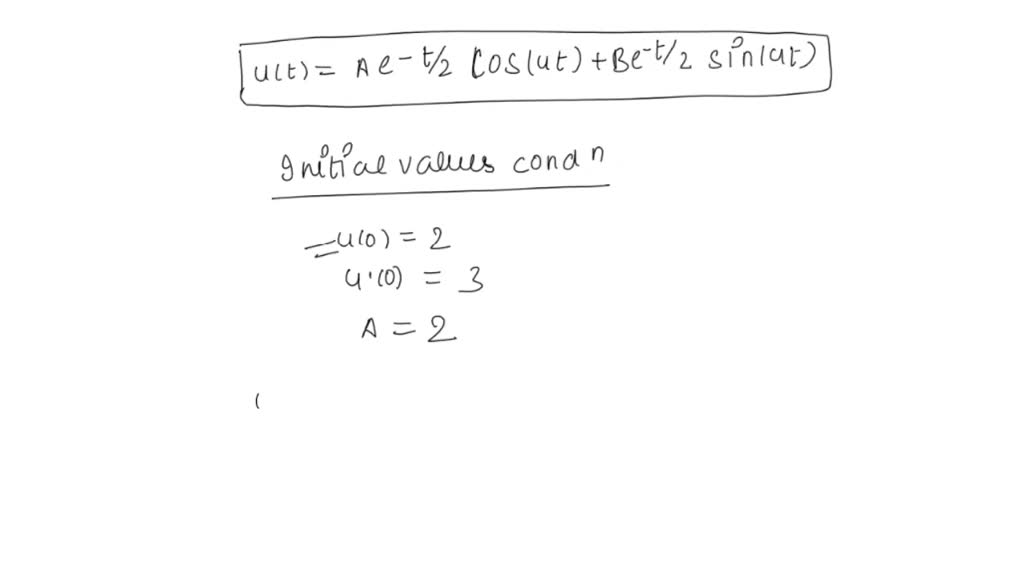 u(t) = A e^{-t/2} cos(ut) + Be^{-t/2} sin(ut)
Initial values cond n
u(0) = 2
u'(0) = 3
A = 2
(